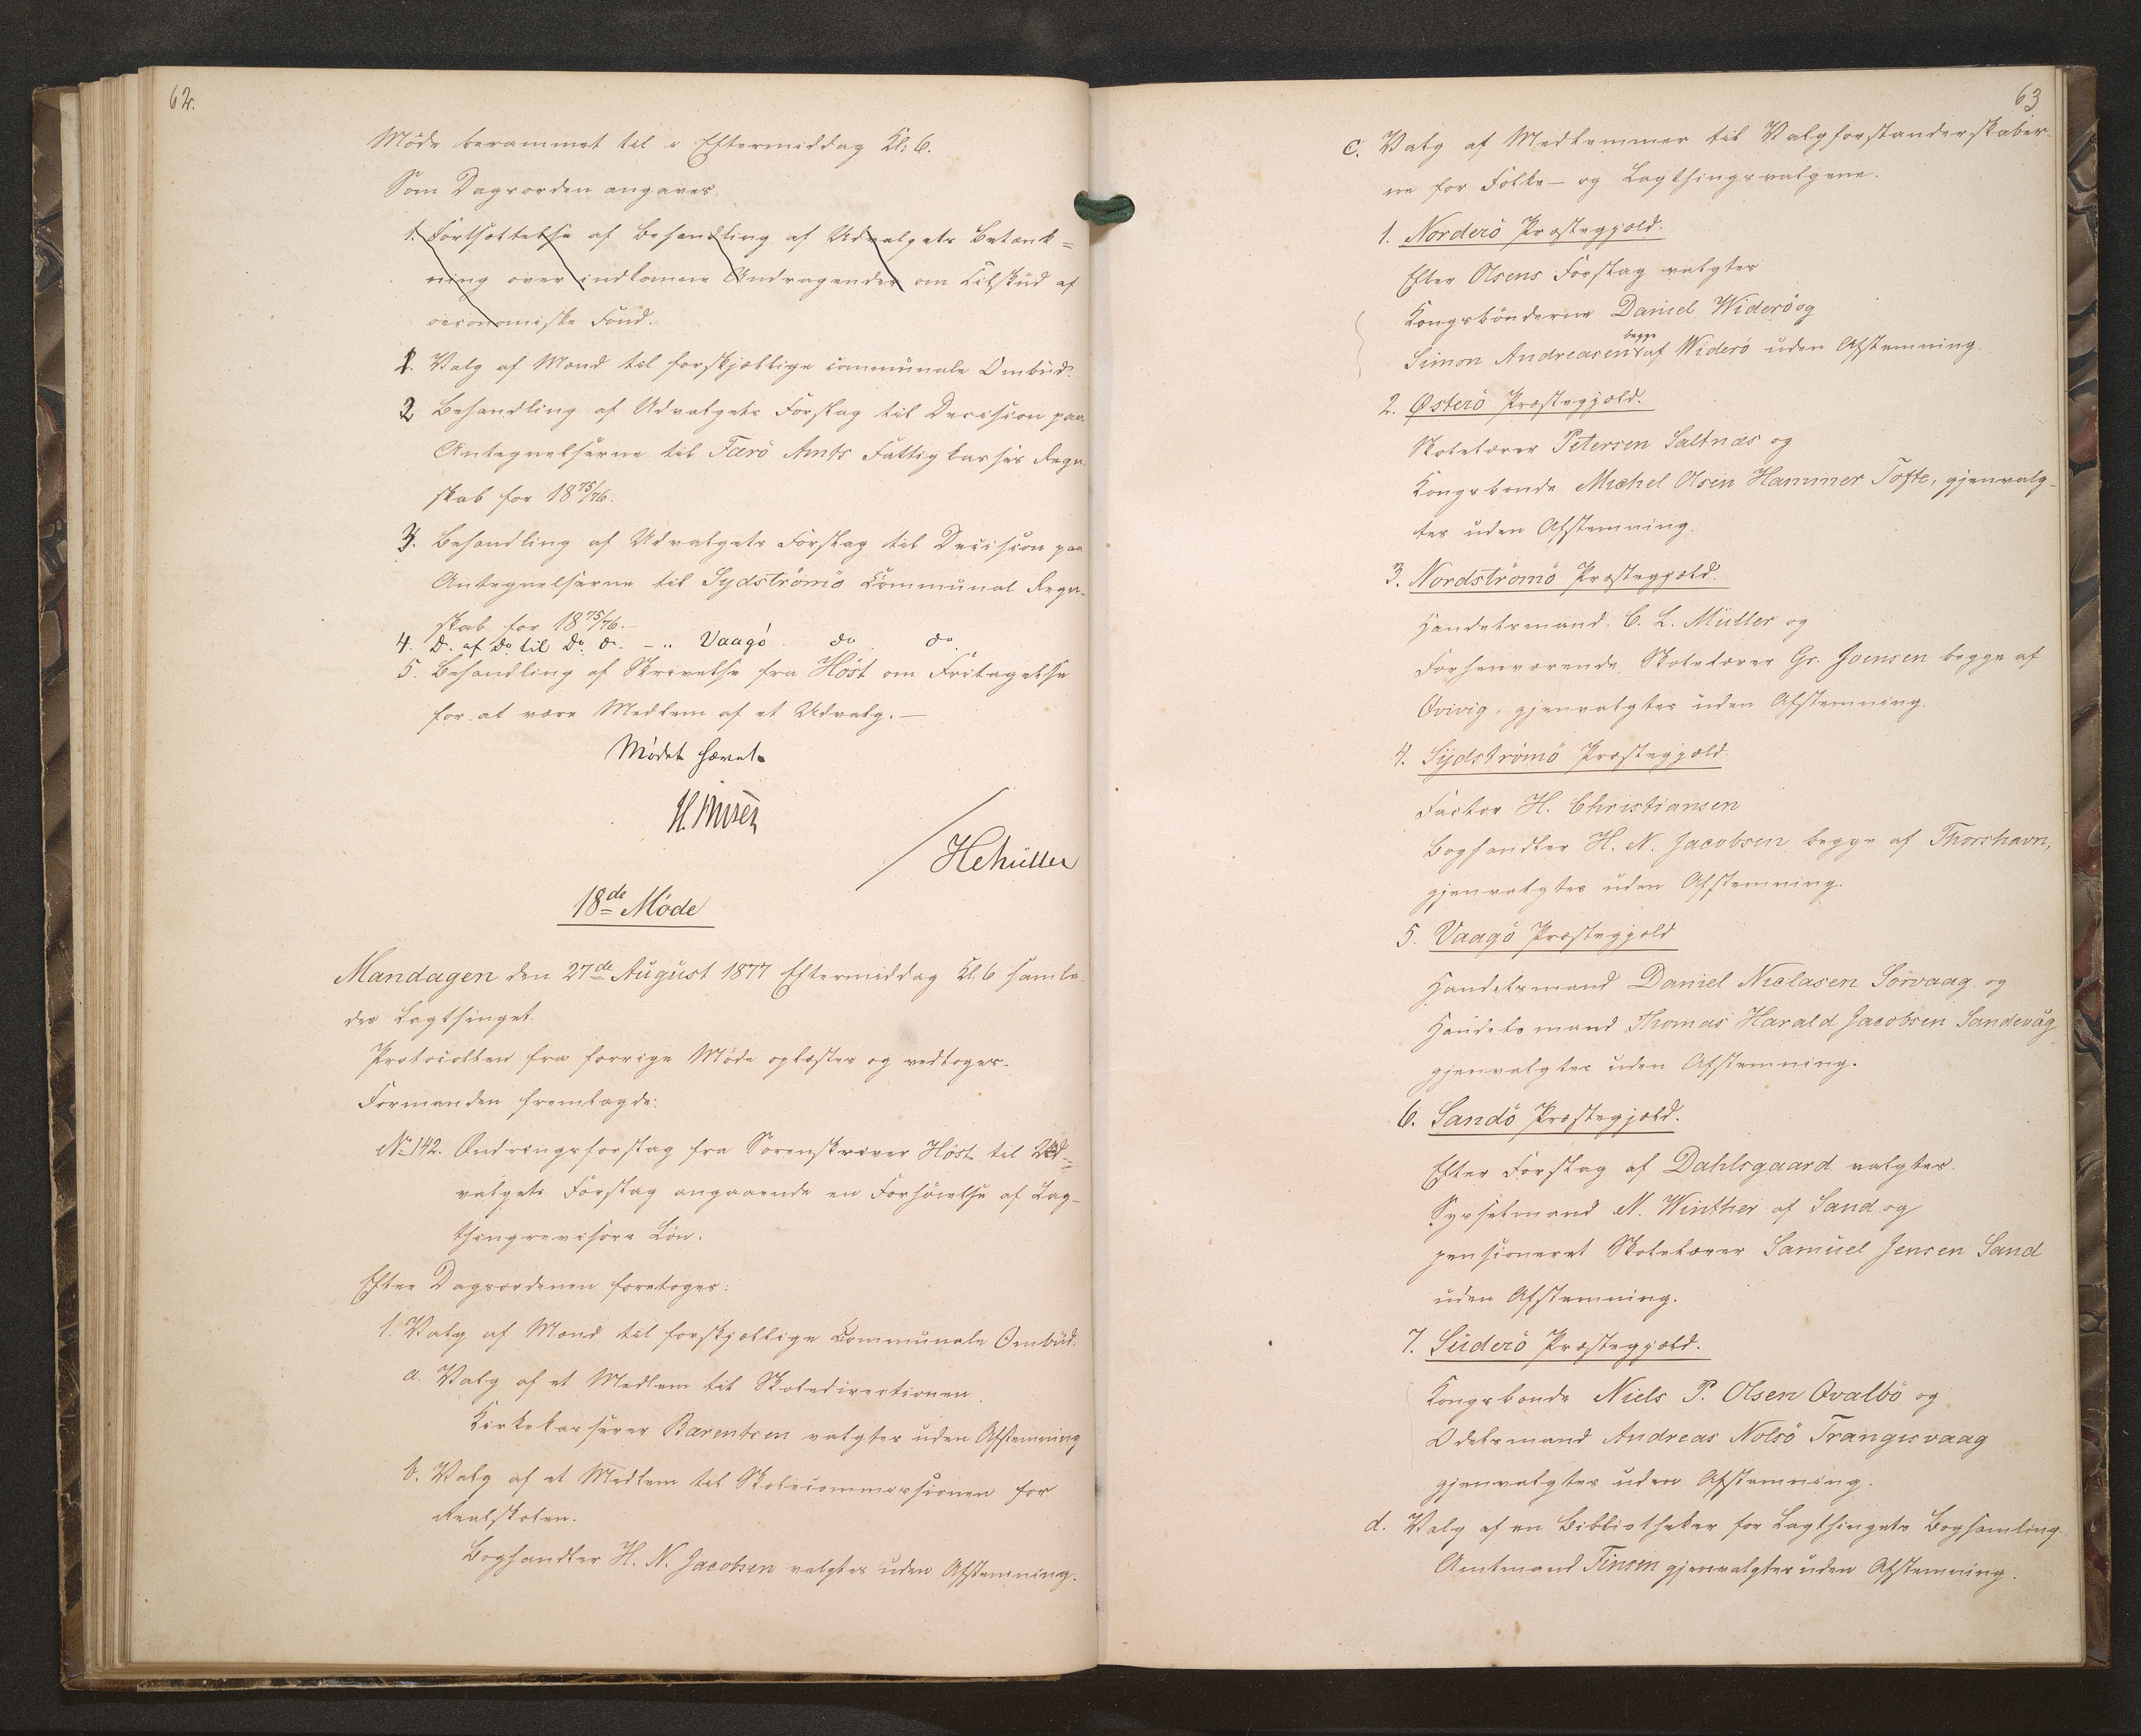 62.
Møde berammet til i Eftermiddag Kl: 6.
Som Dagsorden angaves:
1. Fortsættelse af Behandling af Udvalgets Betænk=
ning over indkomne Andragender om Tilskud af
oeconomiske Fond.
1. Valg af Mænd til forskjællige communale Ombud.
2 Behandling af Udvalgets Forslag til Decision paa
Antegnelserne til Færö Amts Fattigkasses Regn
skab for 18 75/76.
3. Behandling af Udvalgets Forslag til Decision paa
Antegnelserne til Sydströmö Communal Regn-
skab for 18 75/76. -
4. Do. af Do. til Do. o. - „ Vaagö do do.
5. Behandling af Skrivelse fra Höst om Fritagelse
for at være Medlem af et Udvalg. —
Mödet hævet.
HCMüller
18de Møde
Mandagen den 27de August 1877 Eftermiddag Kl. 6 samle-
des Lagthinget.
Protocollen fra forrige Møde oplæstes og vedtoges.
Formanden fremlagde:
No 142. Ændringsforslag fra Sorenskriver Höst til Ud=
valgets Forslag angaaende en Forhöielse af Lag-
thingrevisors Lön.
Efter Dagsordenen foretoges:
1. Valg af Mænd til forskjællige Communale Ombud.
a. Valg af et Medlem til Skoledirectionen.
Kirkekasserer Bærentsen valgtes uden Afstemning
b. Valg af et Medlem til Skolecommissionen for
Realskolen.
Boghandler H. N. Jacobsen valgtes uden Afstemning.
63
c. Valg af Medlemmer til Valgforstanderskaber-
ne for Folke- og Lagthingsvalgene.
1. Norderö Præstegjæld.
Efter Olsens Forslag valgtes
Kongsbönderne Daniel Widerö og
begge
Simon Andreasen af Widerö uden Afstemning.
2. Østerö Præstegjæld.
Skolelærer Petersen Saltnæs og
Kongsbonde Michel Olsen Hammer Tofte, gjenvalg-
tes uden Afstemning.
3. Nordströmö Præstegjæld.
Handelsmand C. L. Müller og
Forhenværende Skolelærer Gr. Joensen begge af
Qvivig, gjenvalgtes uden Afstemning.
4. Sydströmö Præstegjæld.
Factor H. Christiansen
Boghandler H. N. Jacobsen begge af Thorshavn,
gjenvalgtes uden Afstemning.
5. Vaagö Præstegjæld
Handelsmand Daniel Niclasen Sörvaag og
Handelsmand Thomas Harald Jacobsen Sandevåg
gjenvalgtes uden Afstemning.
6. Sandö Præstegjæld.
Efter Forslag af Dahlsgaard valgtes.
Sysselmand M. Winther af Sand og
pensioneret Skolelærer Samuel Jensen Sand
uden Afstemning.
7. Süderö Præstegjæld.
Kongsbonde Niels P. Olsen Qvalbö og
Odelsmand Andreas Nolsö Trangisvaag
gjenvalgtes uden Afstemning.
d. Valg af en Bibliotheker for Lagthingets Bogsamling
Amtmand Finsen gjenvalgtes uden Afstemning.